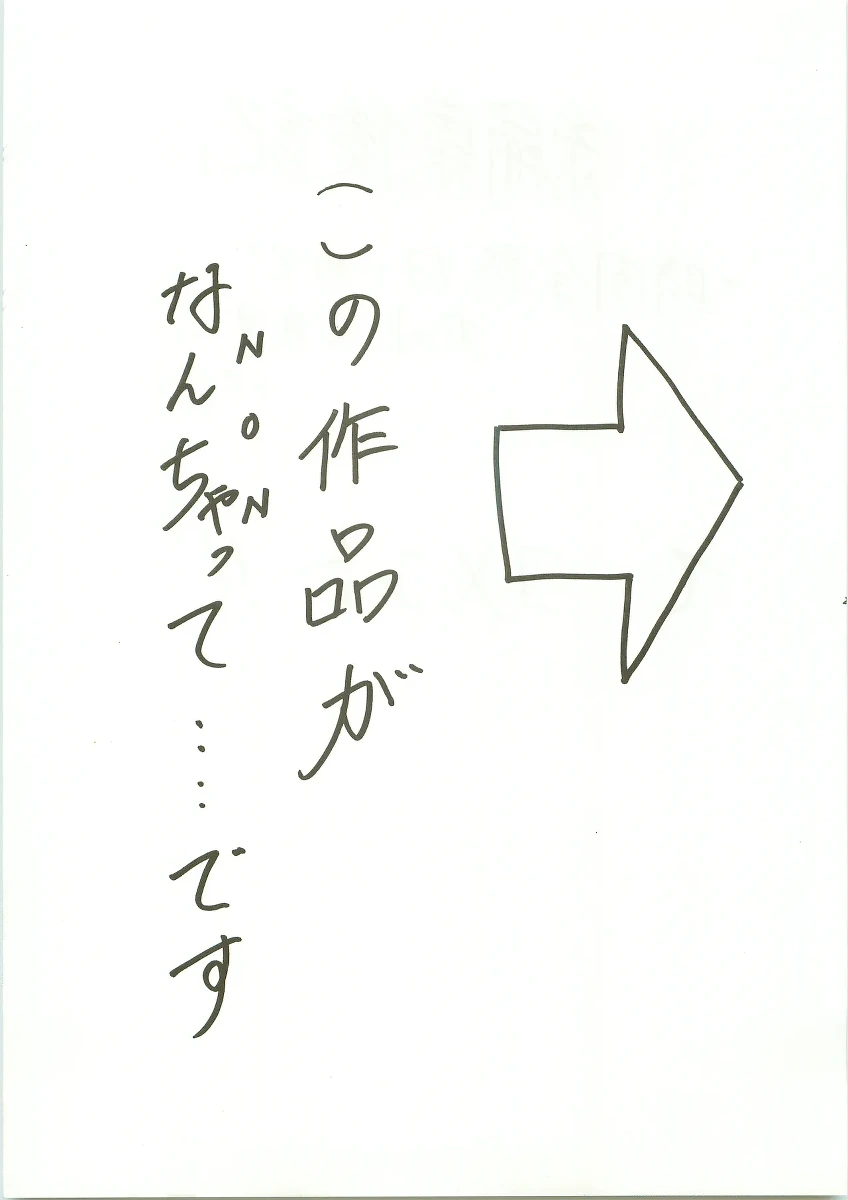 この作品が
なんちゃって……です
NON